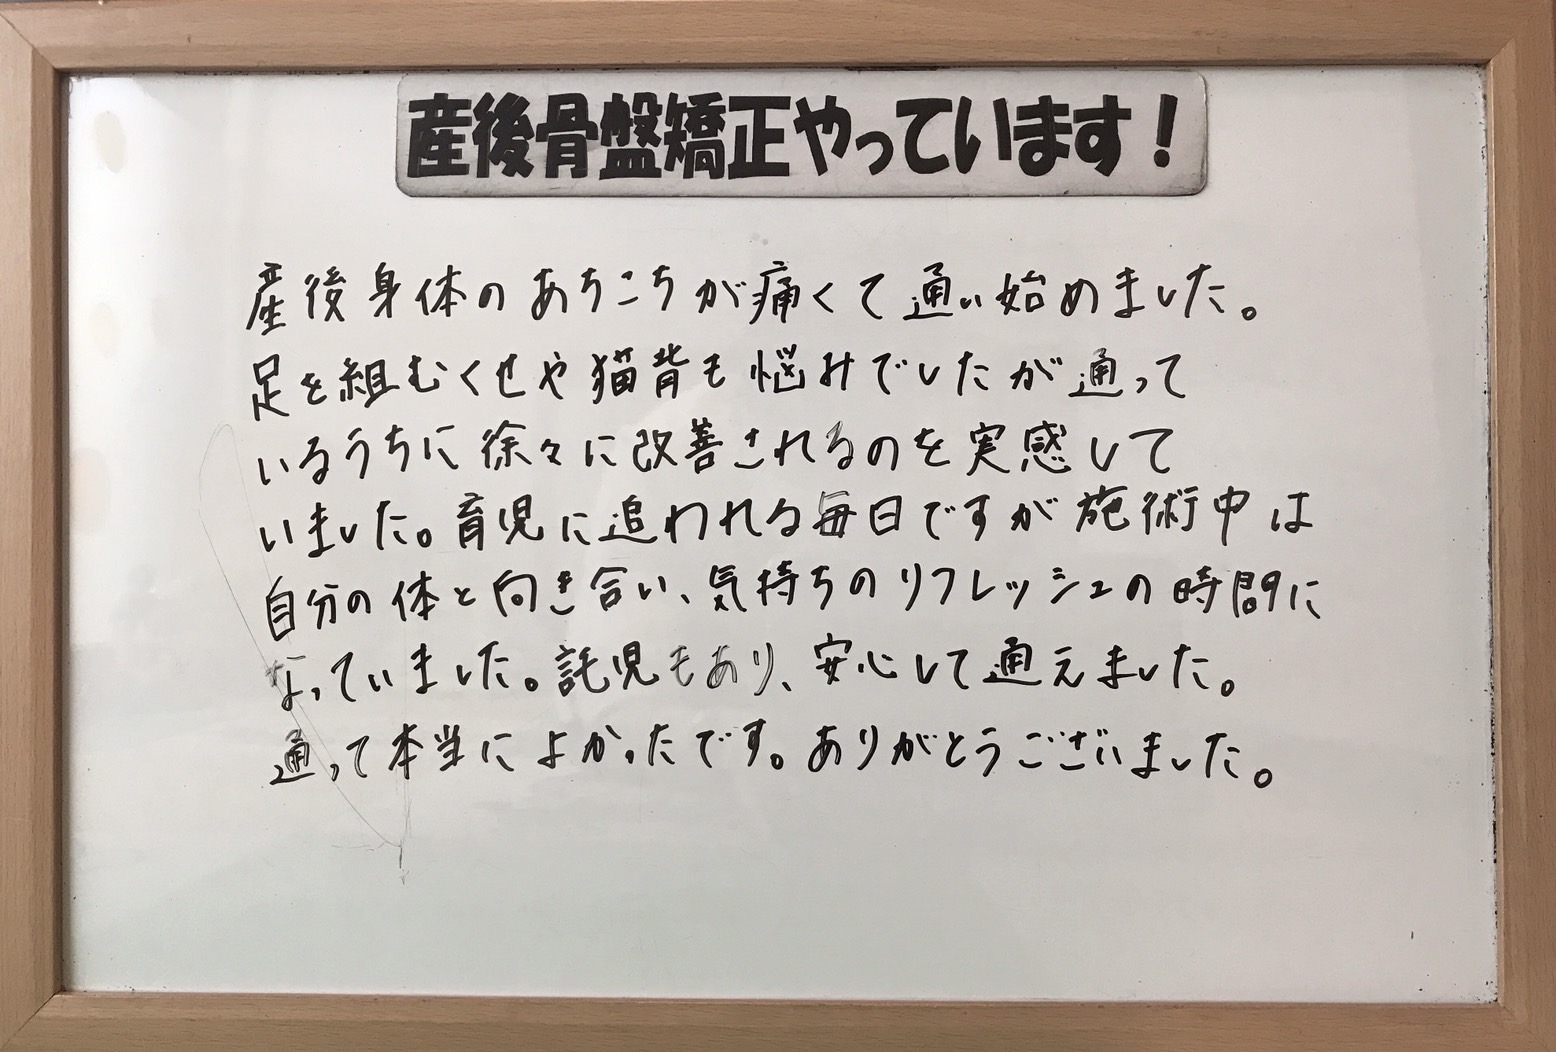 産後骨盤矯正やっています！
産後身体のあちこちが痛くて通い始めました。
足を組むくせや猫背も悩みでしたが通って
いるうちに徐々に改善されるのを実感して
いました。育児に追われる毎日ですが施術中は
自分の体と向き合い、気持ちのリフレッシュの時間に
なっていました。託児もあり、安心して通えました。
通って本当によかったです。ありがとうございました。